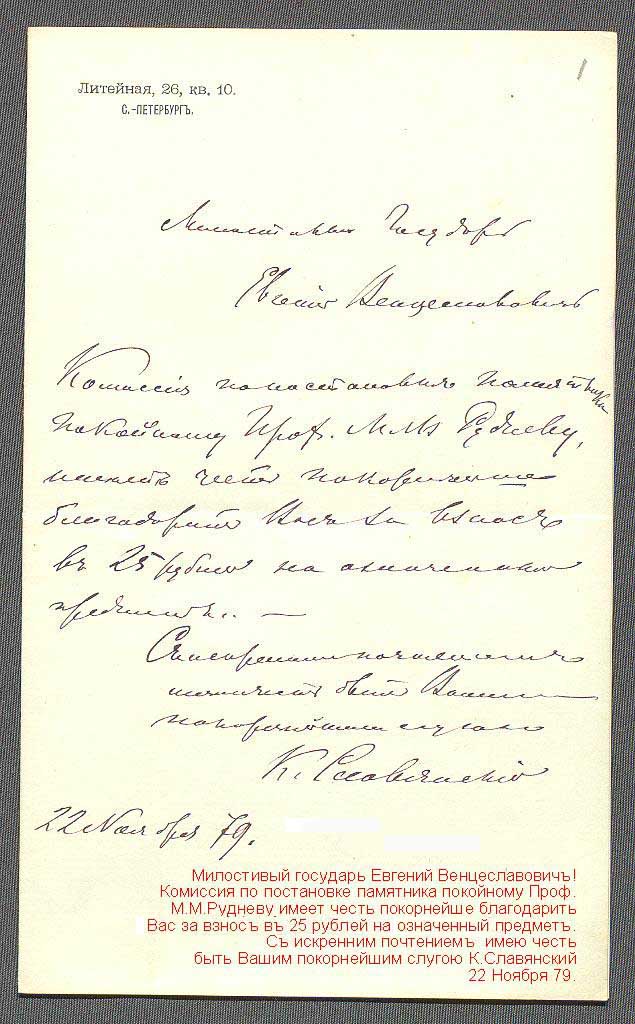 1
Литейная, 26, кв. 10.
С.-ПЕТЕРБУРГЪ.
Милостивый Государь
Евгений Венцеславовичъ
Комиссия по постановке памятника
покойному Проф. М.М. Рудневу,
имеетъ честь покорнейше
благодарить Васъ за взносъ
въ 25 рублей на означенный
предметъ. —
Съ искреннимъ почтениемъ
имею честь быть Вашимъ
покорнейшимъ слугою
К. Славянский
22 Ноября 79.
Милостивый государь Евгений Венцеславовичъ!
Комиссия по постановке памятника покойному Проф.
М.М.Рудневу имеет честь покорнейше благодарить
Вас за взносъ въ 25 рублей на означенный предметъ.
Съ искренним почтениемъ имею честь
быть Вашим покорнейшим слугою К.Славянский
22 Ноября 79.